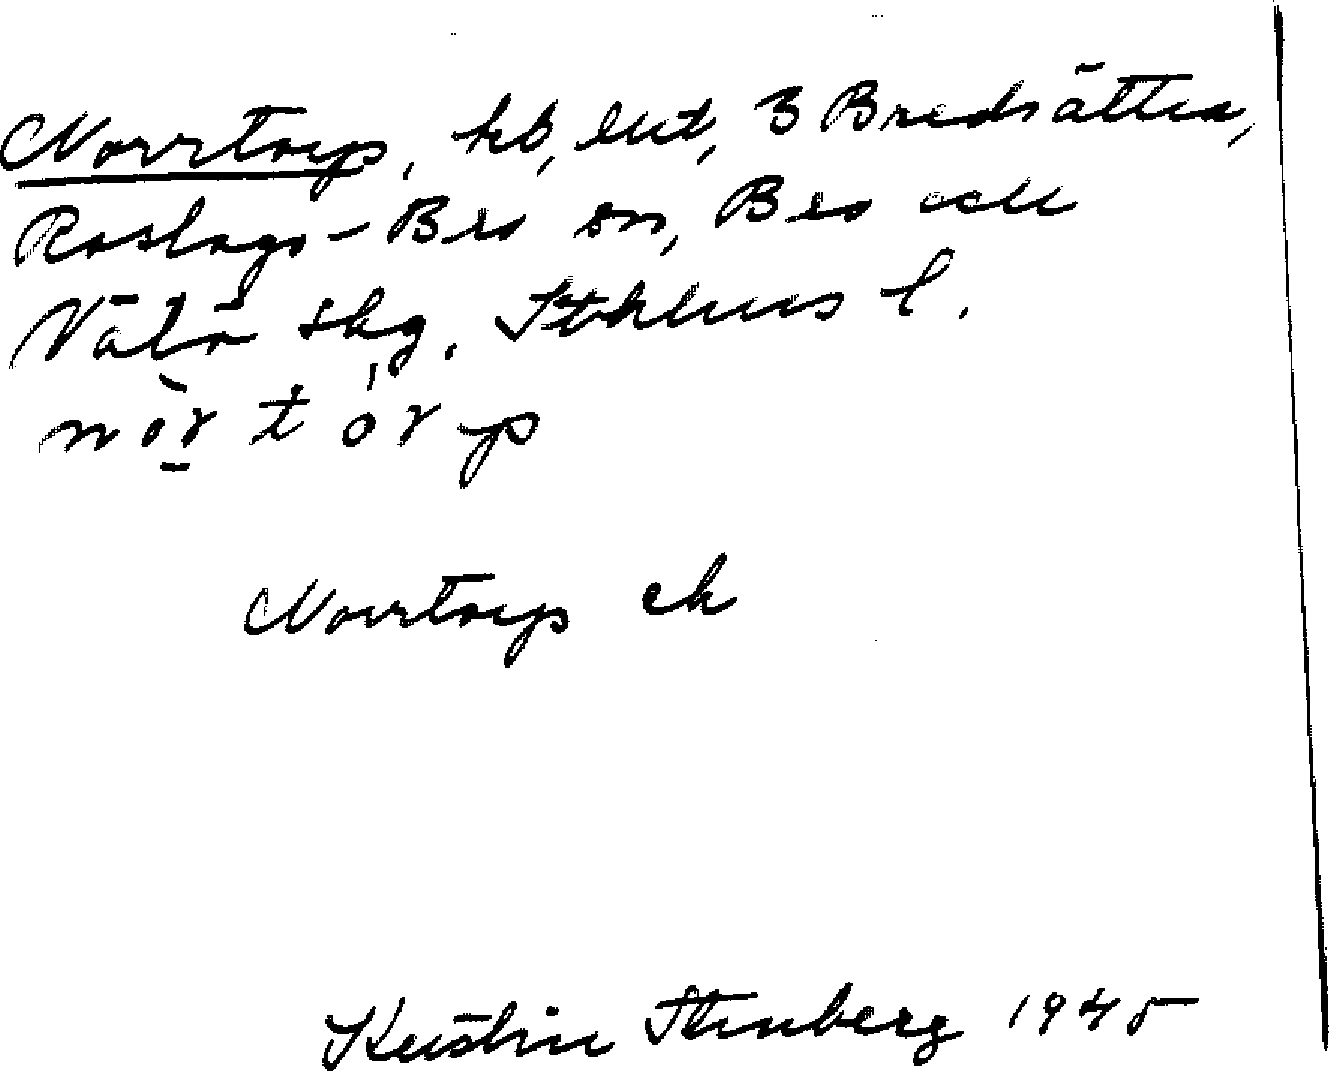 Norrtorp, hb, lht, 3 Bredsätten,
Roslags-Bro sn, Bro och
Vätö skg, Sthlms l.
nòr̲ t ór p
Norrtorp ek
Kerstin Stenberg 1945